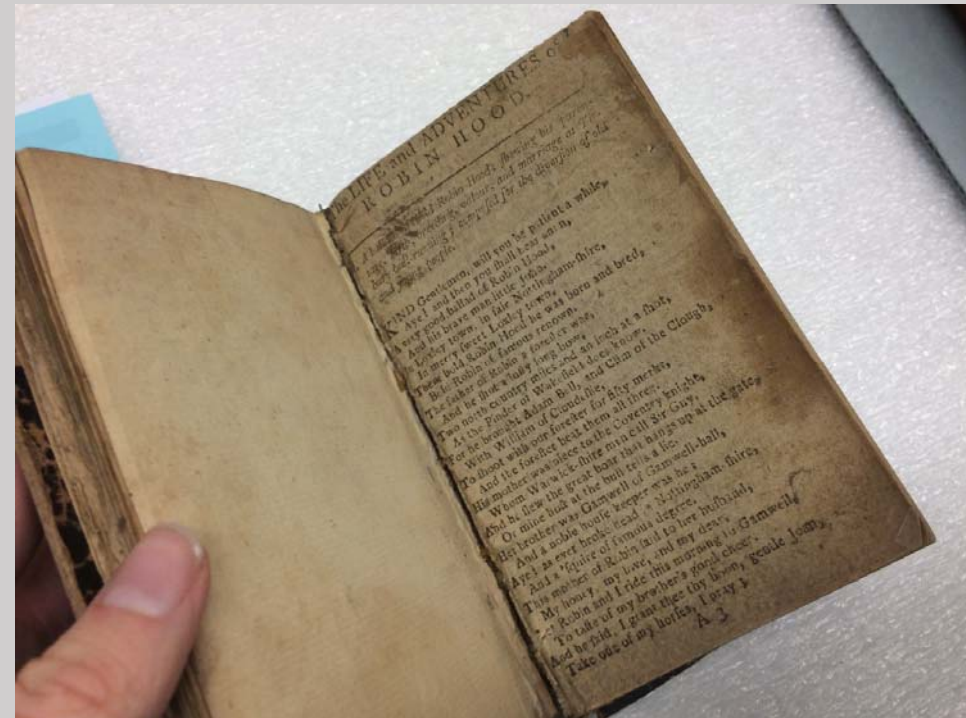 The LIFE and ADVENTURES of
ROBIN HOOD.
Robin Hood; shewing his
marriage
composed for the diversion of old
people.
KIND Gentlemen, will you be patient a while,
Aye! and then you shall hear anon,
A very good ballad of Robin Hood,
And his brave man little John.
Loxley town, in fair Nottingham-shire,
In merry sweet Loxley town,
There bold Robin Hood he was born and bred,
Bold Robin of famous renown.
The father of Robin a forester was,
And he shot a lusty long bow,
Two north-country miles and an inch at a shot,
As the Pinder of Wakefield does know.
For he brought Adam Bell, and Clim of the Clough,
With William of
To shoot with our forester for fifty marks,
And the forester beat them all three.
His mother was niece to the Coventry knight,
Whom Warwick-shire men call Sir Guy,
And he slew the great boar that hangs up at the gate,
Or mine host at the bull tells a lie.
Her brother was Gamwell of Gamwell-hall,
And a noble house keeper was he;
Aye! as ever broke bread in Nottingham-shire,
And a 'squire of famous degree.
This mother of Robin said to her husband,
My honey, my love, and my dear,
Robin and I ride this morning to Gamwell,
To taste of my brother's good cheer.
And he said, I grant thee thy boon, gentle Joan,
Take one of my horses, I pray;
A 3